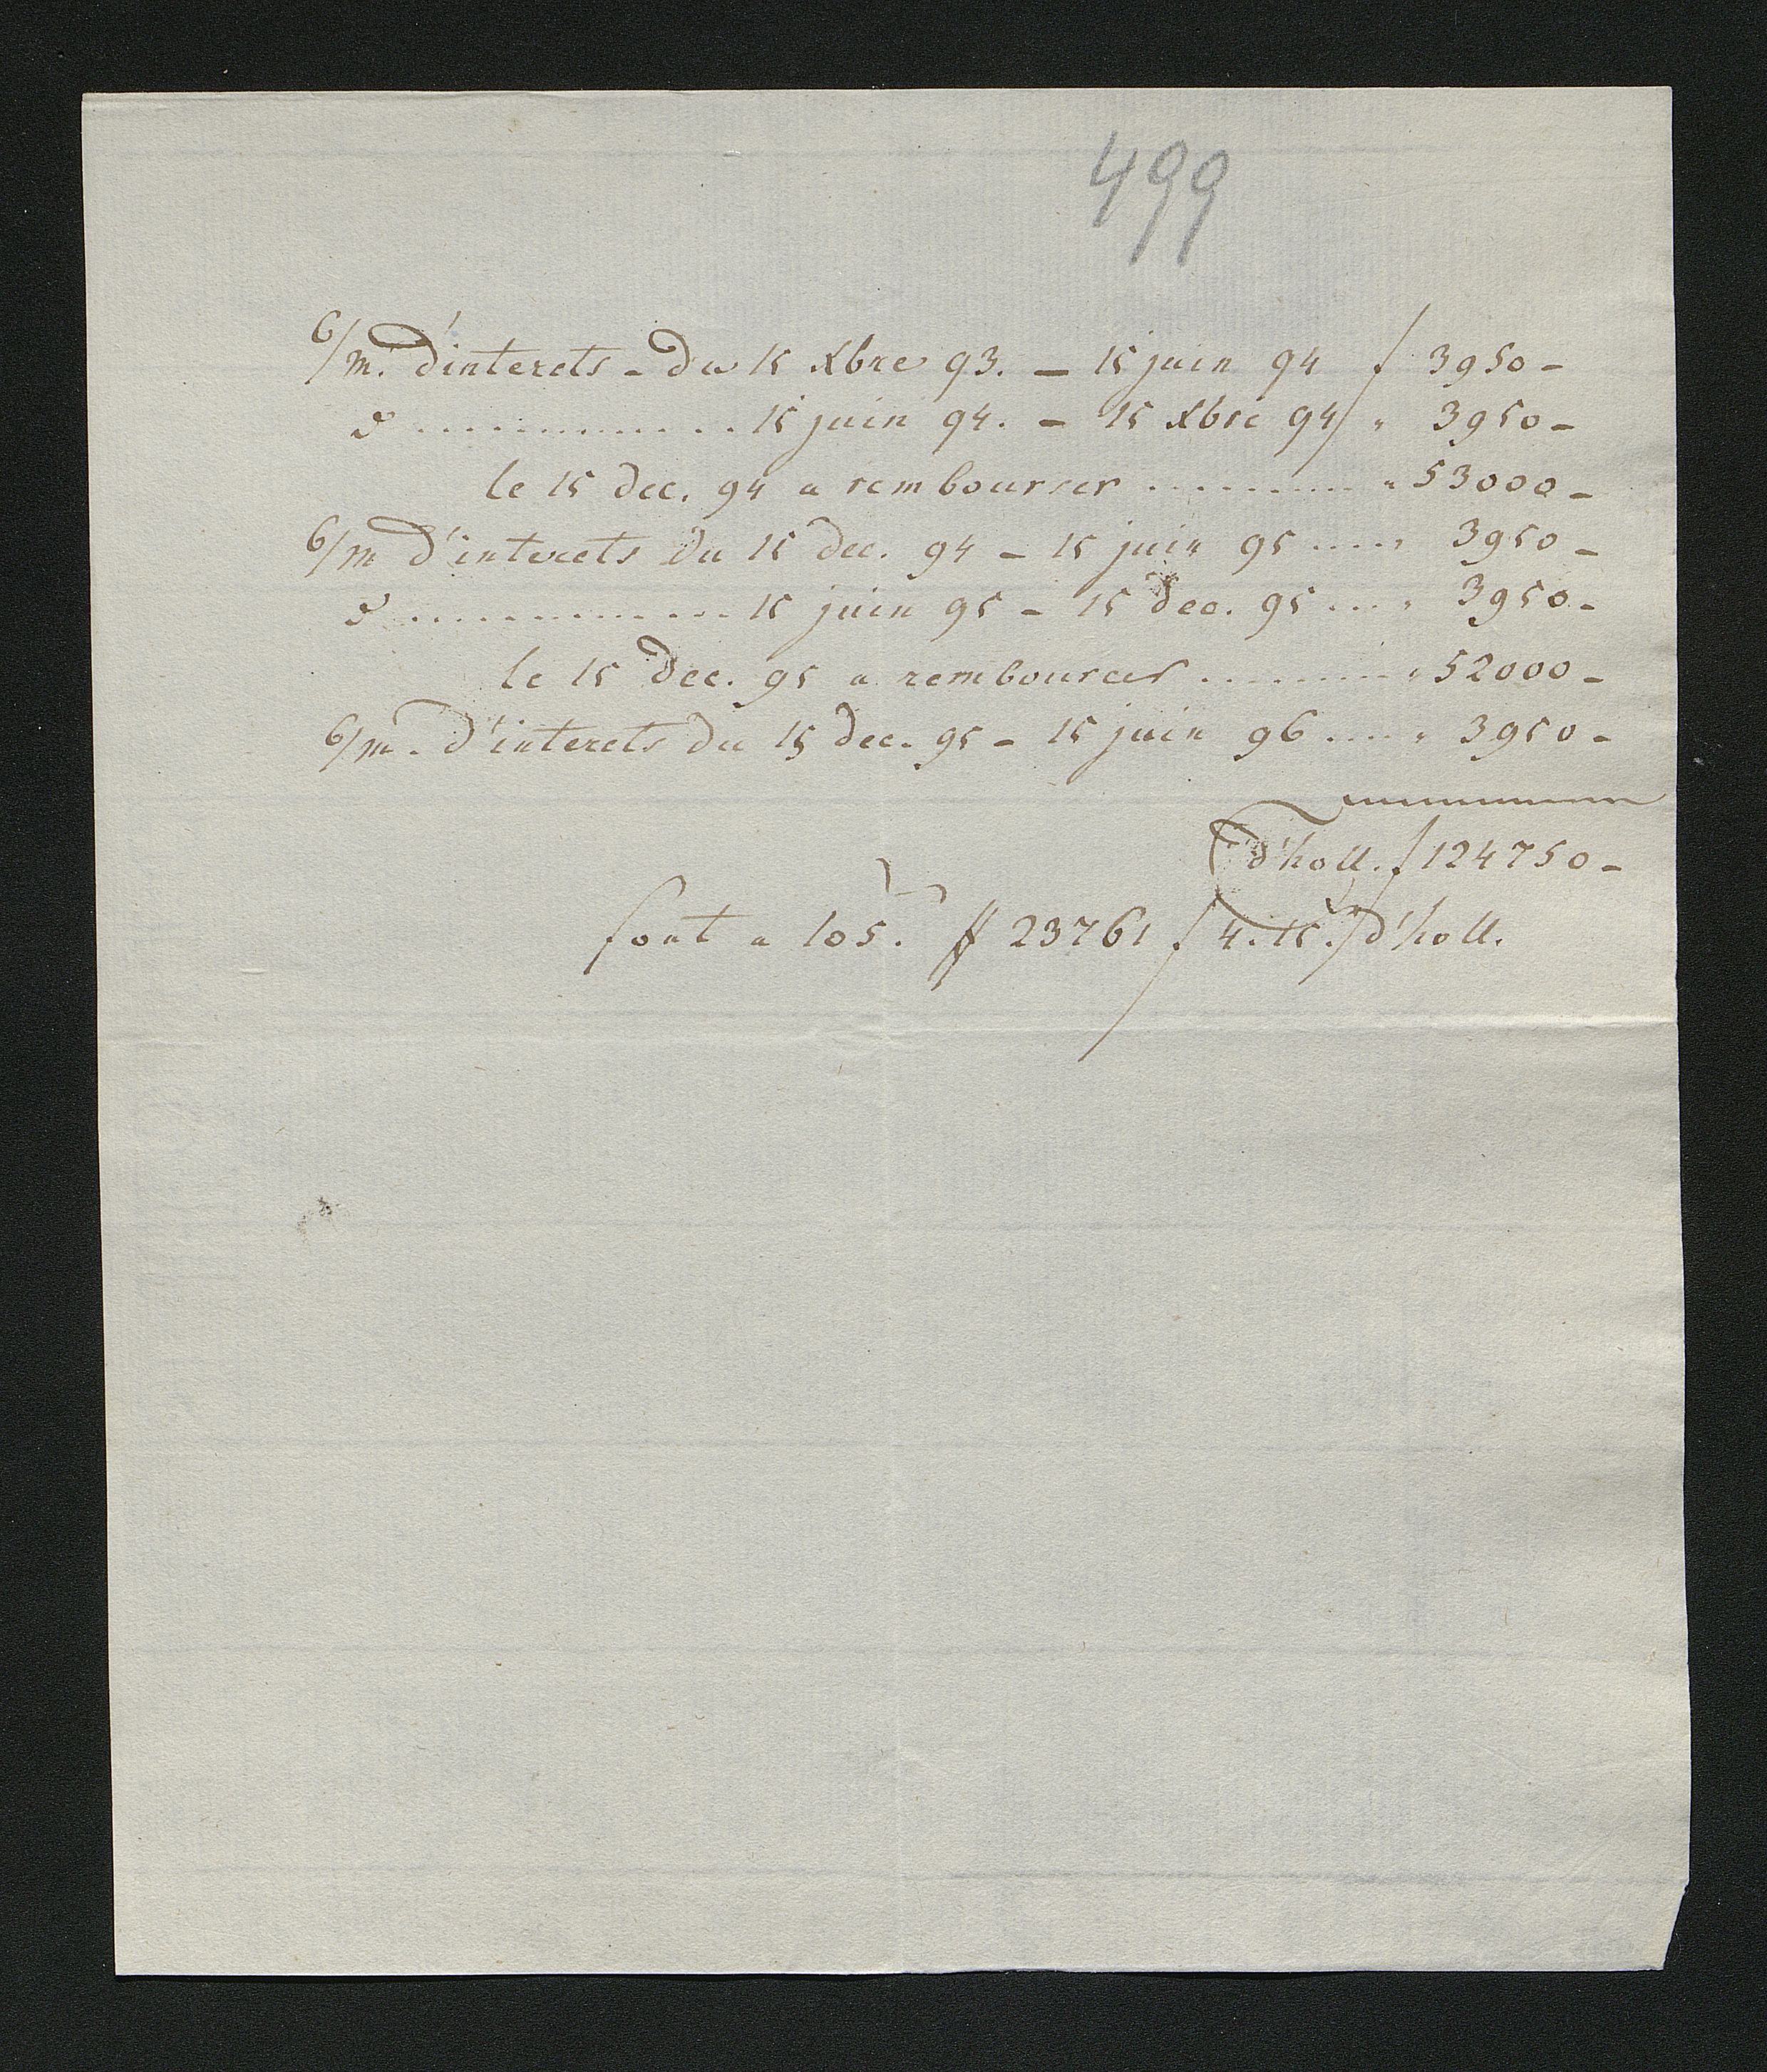 499
6/m. d'interets - du 15 Xbre 93. - 15 juin 94 f 3950 -
do ............ 15 juin 94. - 15 Xbre 94 " 3950 -
le 15 dec. 94 a rembourser ......... " 53000 -
6/m d'interets du 15 dec. 94 - 15 juin 95 .... " 3950 -
do ............ 15 juin 95 - 15 dec. 95 .... " 3950 -
le 15 dec. 95 a rembourser ......... " 52000 -
6/m. d'interets du 15 dec. 95 - 15 juin 96 .... " 3950 -
d'holl. f 124750 -
font a 105. # 23761 f 4.15. d'holl.